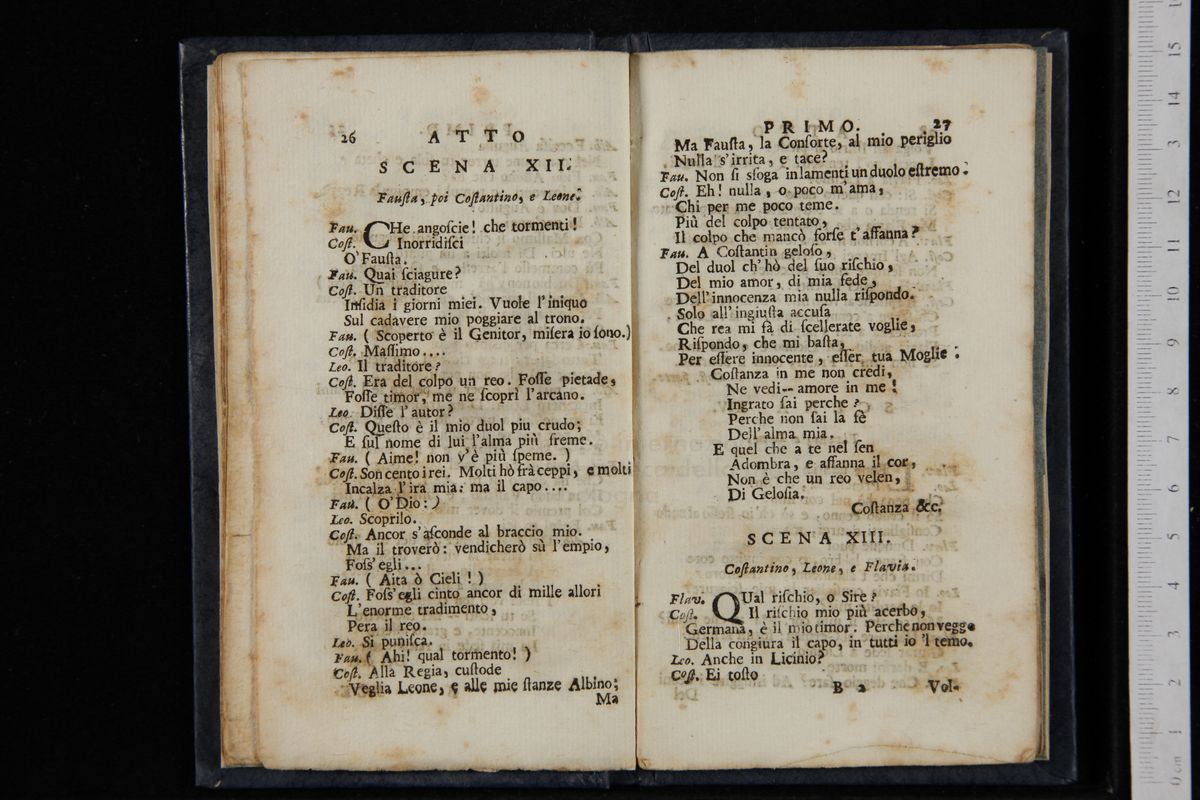 26 ATTO
SCENA XII.
Fauſta, poi Coſtantino, e Leone.
Fau. CHe angoſcie! che tormenti!
Coſt. Inorridiſci
O'Fauſta.
Fau. Quai ſciagure?
Coſt. Un traditore
Inſidia i giorni miei. Vuole l'iniquo
Sul cadavere mio poggiare al trono.
Fau. ( Scoperto è il Genitor, miſera io ſono.)
Coſt. Maſſimo....
Leo. Il traditore?
Coſt. Era del colpo un reo. Foſſe pietade,
Foſſe timor, me ne ſcoprì l'arcano.
Leo. Diſſe l'autor?
Coſt. Queſto è il mio duol piu crudo;
E ſul nome di lui l'alma più freme.
Fau. ( Aime! non v'è più ſpeme. )
Coſt. Son cento i rei. Molti hò frà ceppi, e molti
Incalza l'ira mia: ma il capo....
Fau. ( O'Dio: )
Leo. Scoprilo.
Coſt. Ancor s'aſconde al braccio mio.
Ma il troverò: vendicherò sù l'empio,
Foſs'egli...
Fau. ( Aita ò Cieli ! )
Coſt. Foſs'egli cinto ancor di mille allori
L'enorme tradimento,
Pera il reo.
Leo. Si puniſca.
Fau. ( Ahi! qual tormento! )
Coſt. Alla Regia, cuſtode
Veglia Leone, e alle mie ſtanze Albino;
Ma
PRIMO. 27
Ma Fauſta, la Conſorte, al mio periglio
Nulla s'irrita, e tace?
Fau. Non ſi sfoga in lamenti un duolo eſtremo.
Coſt. Eh! nulla, o poco m'ama,
Chi per me poco teme.
Più del colpo tentato,
Il colpo che mancò forſe t'affanna?
Fau. A Coſtantin geloſo,
Del duol ch'hò del ſuo riſchio,
Del mio amor, di mia fede,
Dell'innocenza mia nulla riſpondo.
Solo all'ingiuſta accuſa
Che rea mi fà di ſcellerate voglie,
Riſpondo, che mi baſta,
Per eſſere innocente, eſſer tua Moglie.
Coſtanza in me non credi,
Ne vedi-- amore in me!
Ingrato ſai perche?
Perche non ſai la fè
Dell'alma mia.
E quel che a te nel ſen
Adombra, e affanna il cor,
Non è che un reo velen,
Di Geloſia.
Coſtanza &c.
SCENA XIII.
Coſtantino, Leone, e Flavia.
Flav. QUal riſchio, o Sire?
Coſt. Il riſchio mio più acerbo,
Germana, è il mio timor. Perche non veggo
Della congiura il capo, in tutti io 'l temo.
Leo. Anche in Licinio?
Coſt. Ei toſto
B 2 Vol-